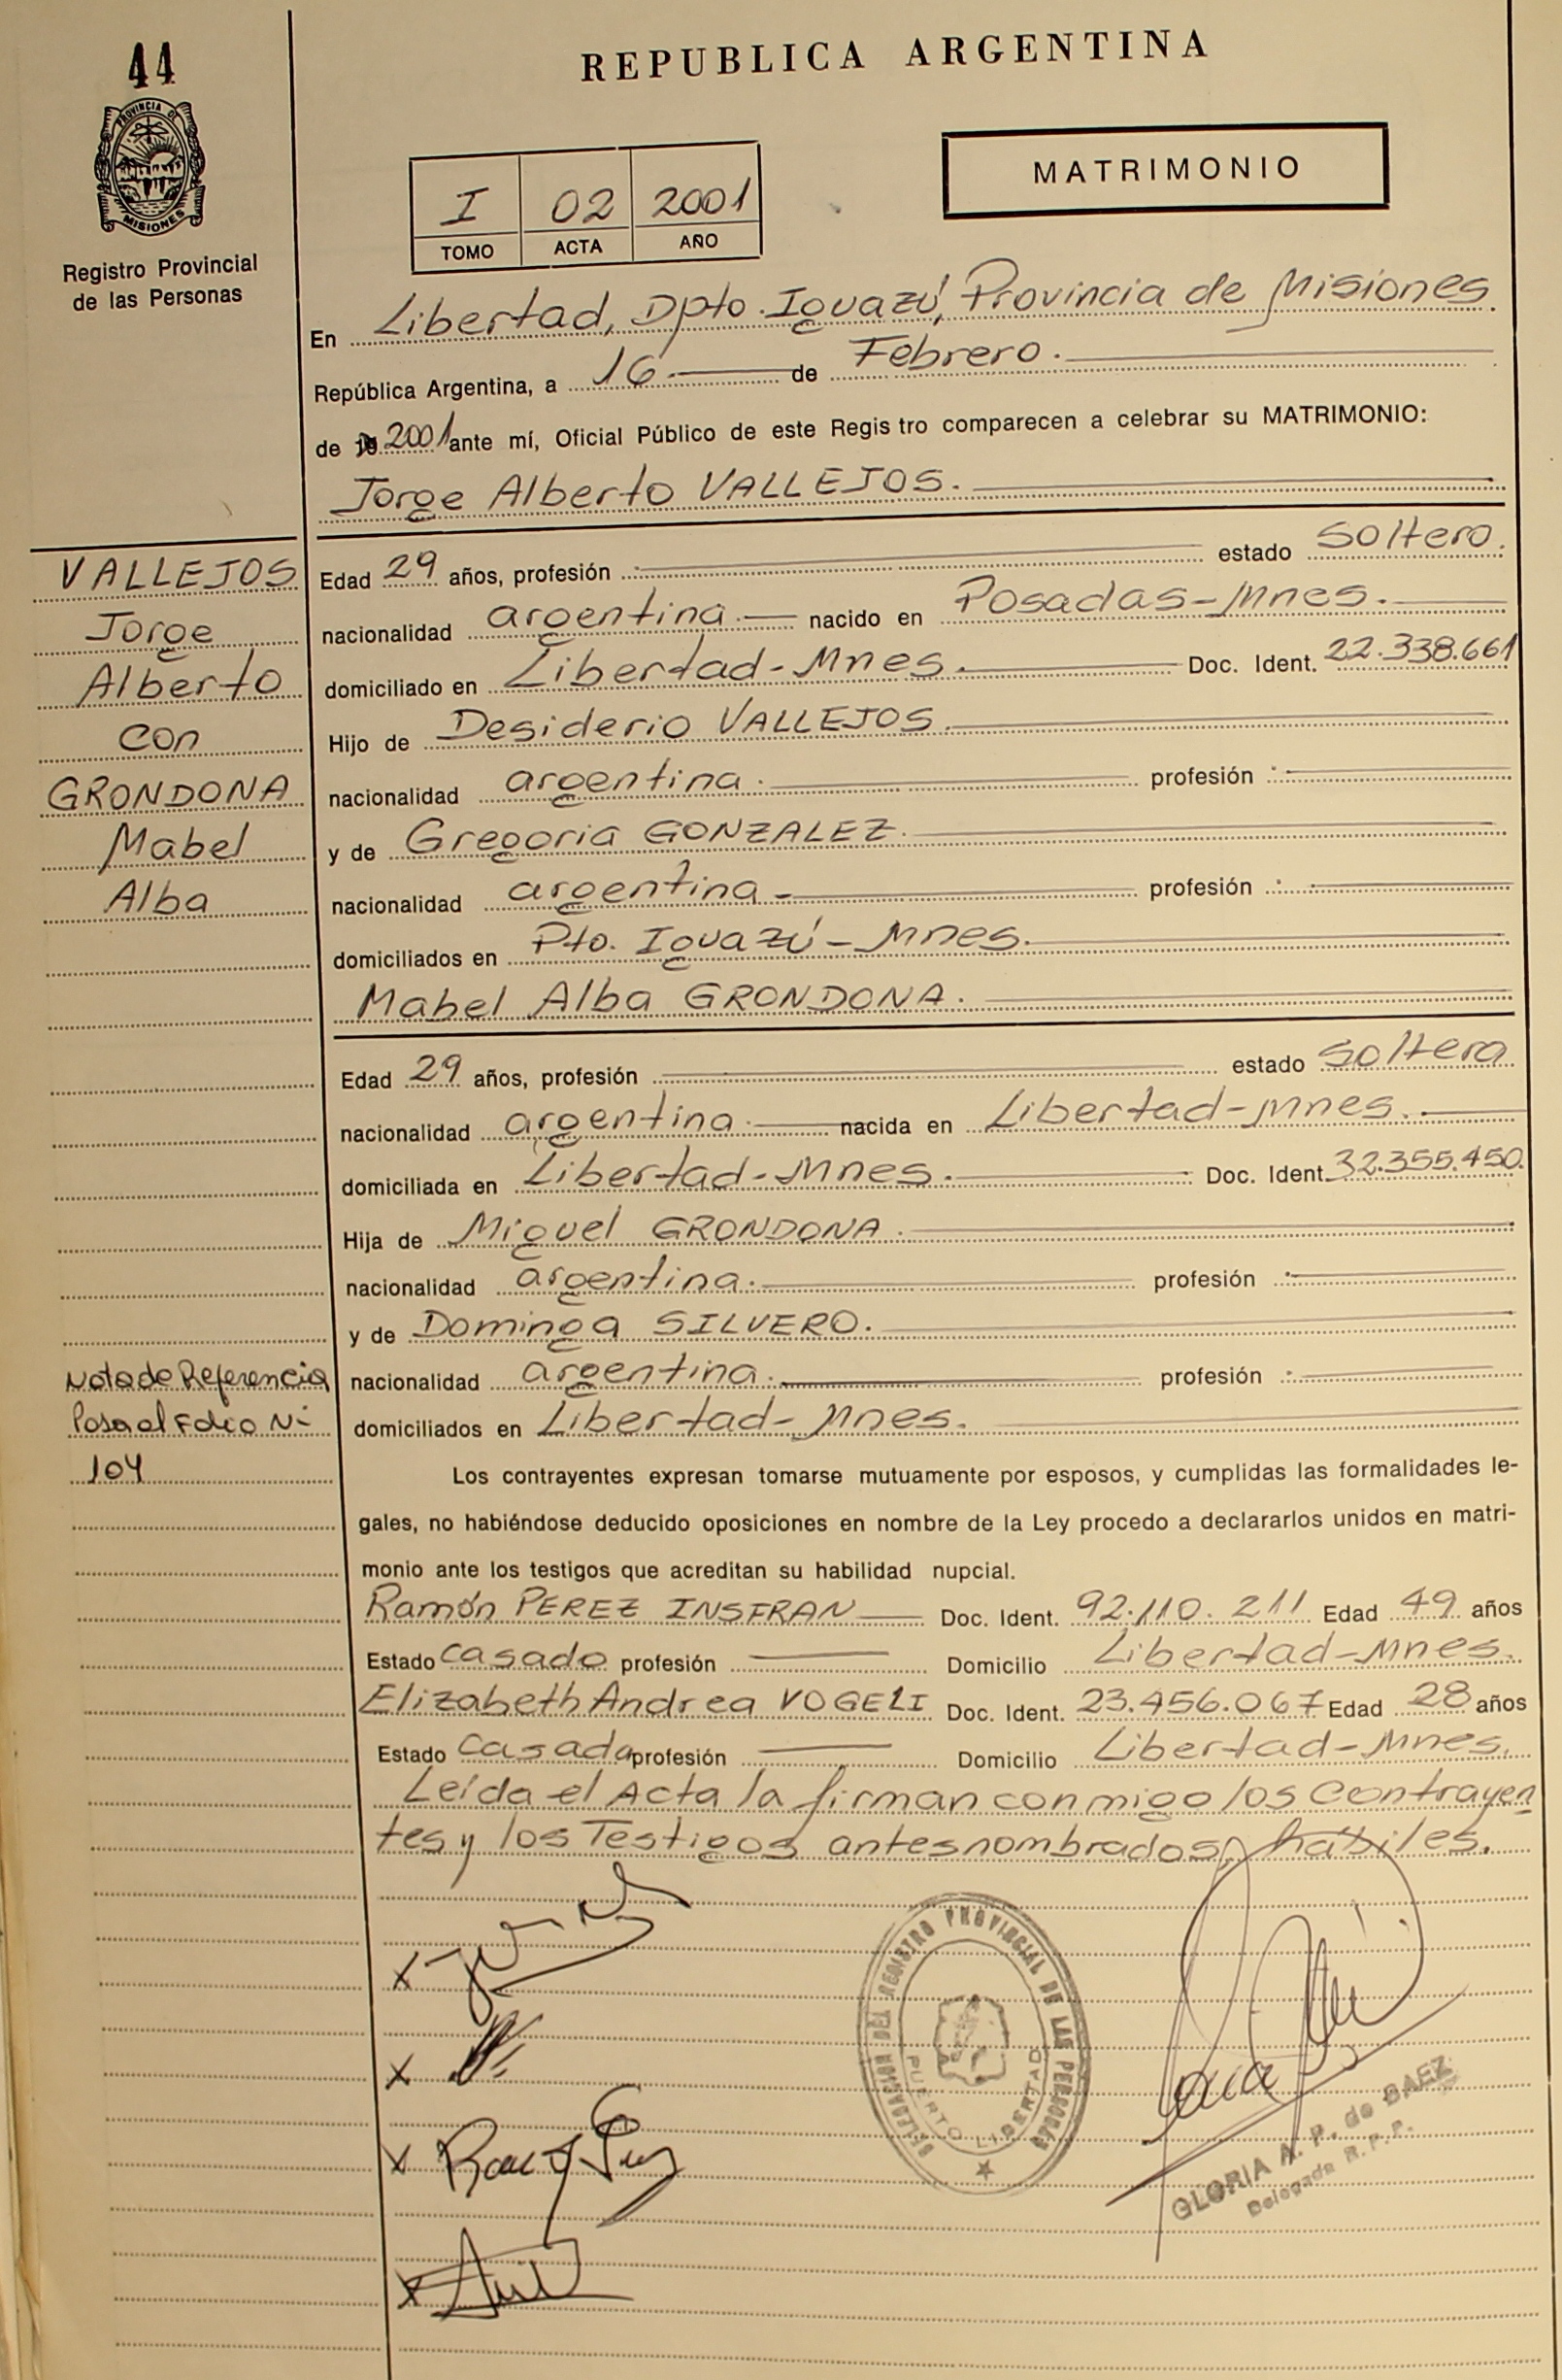 44
PROVINCIA DE
MISIONES
Registro Provincial
de las Personas
REPUBLICA ARGENTINA
MATRIMONIO
I 02 2001
TOMO ACTA AÑO
En Libertad, Dpto. Iguazú, Provincia de Misiones.
República Argentina, a 16 de Febrero.
de 2001 ante mí, Oficial Público de este Regis tro comparecen a celebrar su MATRIMONIO:
Jorge Alberto VALLEJOS.
VALLEJOS
Jorge
Alberto
con
GRONDONA
Mabel
Alba
Edad 29 años, profesión estado Soltero.
nacionalidad argentina. nacido en Posadas-Mnes.
domiciliado en Libertad-Mnes. Doc. Ident. 22.338.661
Hijo de Desiderio VALLEJOS.
nacionalidad argentina. profesión
y de Gregoria GONZALEZ.
nacionalidad argentina. profesión
domiciliados en Pto. Iguazú-Mnes.
Mabel Alba GRONDONA.
Edad 29 años, profesión estado Soltera
nacionalidad argentina. nacida en Libertad-Mnes.
domiciliada en Libertad-Mnes. Doc. Ident. 32.355.450.
Hija de Miguel GRONDONA.
nacionalidad argentina. profesión
y de Dominga SILVERO.
nacionalidad argentina. profesión
domiciliados en Libertad-Mnes.
Nota de Referencia
Pasa al Folio N-
104
Los contrayentes expresan tomarse mutuamente por esposos, y cumplidas las formalidades le-
gales, no habiéndose deducido oposiciones en nombre de la Ley procedo a declararlos unidos en matri-
monio ante los testigos que acreditan su habilidad nupcial.
Ramón PEREZ INSFRAN Doc. Ident. 92.110.211 Edad 49 años
Estado casado profesión Domicilio Libertad-Mnes.
Elizabeth Andrea VOGELI Doc. Ident. 23.456.067 Edad 28 años
Estado Casada profesión Domicilio Libertad-Mnes.
Leída el Acta la firman conmigo los Contrayen
tes y los Testigos antes nombrados, hábiles.
DELEGACION DEL REGISTRO PROVINCIAL DE LAS PERSONAS
PUERTO LIBERTAD
GLORIA A. P. de BAEZ
Delegada R. P. P.